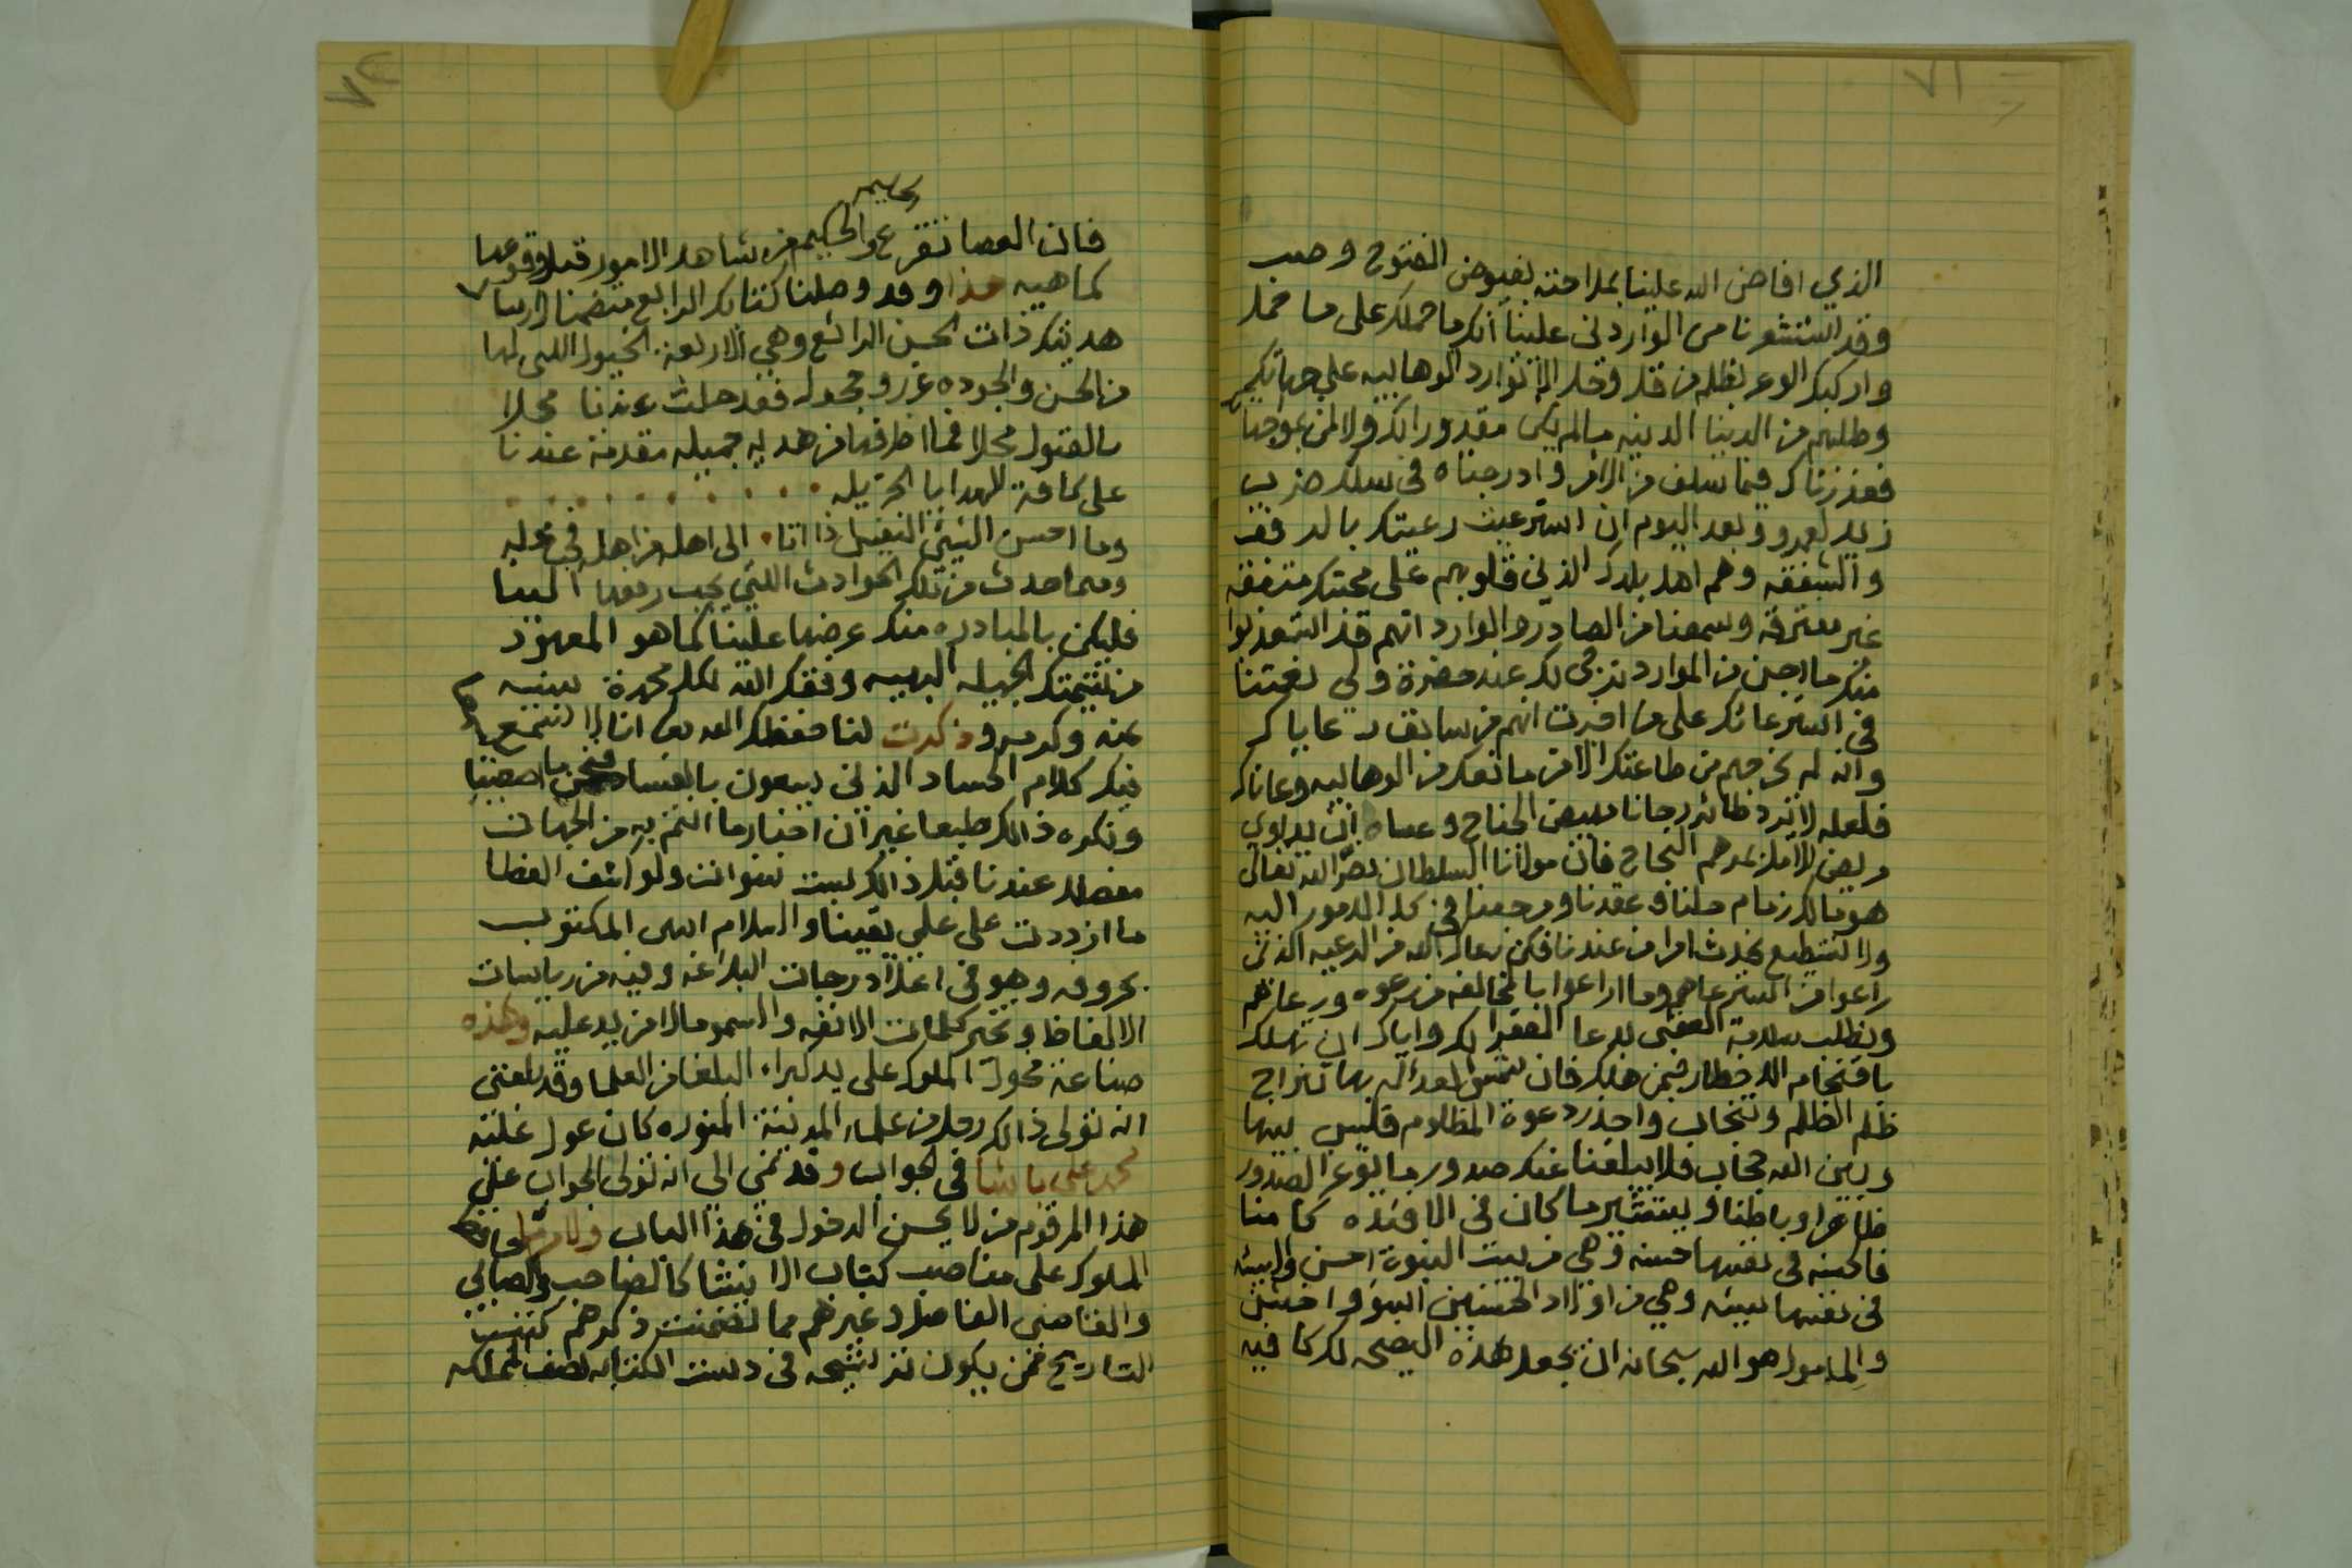 ٧١
الذي افاض الله علينا بملاحته بفيوض الفتوح وصب
وقد استشعرنا من الواردين علينا انكم ما حملكم على ما حمل
واركبكم الوعر بظلم من قل وجل الا توارد الوهابيه على جهاتكم
وطلبهم من الدنيا الدنيه ما لم يكن مقدورا لكم ولا لمن
فعذرناكم فيما سلف من الامر وادرجناه في سلك ضرب
زيد لعمرو وبعد اليوم ان استرعيت رعيتك بالرفق
والشفقه وهم اهل بلدك الذين قلوبهم على محبتك متفقه
غير مفترقه وسمعنا من الصادر والوارد انهم قد استعذبوا
منك ما اجن من الموارد ترجى لك عند حضرة ولي نعمتنا
في استرعائك على ما اخبرت انهم من سابق رعاياك
وانه لم يخرجهم من طاعتك الا من مانعك من الوهابيه وعاناك
فلعله لا يرد طائر رجانا مبيض الجناح وعساه ان يداوي
مريض الامل بمرهم النجاح فان مولانا السلطان نصره الله تعالى
هو مالك زمام حلنا وعقدنا ومرجعنا في كل الامور اليه
ولا نستطيع نحدث امرا من عندنا فكن رعاك الله من الرعيه الذين
راعوا من استرعاهم وما راعوا بالمخالفه من رعوه ورعاهم
ونطلب سلامة العقبى بدعا الفقرا لك واياك ان تهلك
باقتحام الاخطار فيمن هلك فان شمس العداله بها تنزاح
ظلم الظلم وتنجاب واحذر دعوة المظلوم فليس بينها
وبين الله حجاب فلا يبلغنا عنك صدور ما يوغر الصدور
ظاهرا وباطنا ويستثير ما كان في الافئده كامنا
فالحسنه في نفسها حسنه وهي من بيت النبوة احسن والسيئه
في نفسها سيئه وهي من اولاد الحسنين اسوء واخشن
والمامول هو الله سبحانه ان يجعل هذه النصيحه لك كافيه
٧٢
فان العصا تقرع والحكيم من شاهد الامور قبل وقوعها
كما هيه هذا وقد وصلنا كتابكم الرابع متضمنا ارسال
هديتك ذات الحسن الرائع وهي الاربعة الخيول التي لها
من الحسن والجوده غرر وحجول فقد حلت عندنا محلا
بالقبول محلا فما اظرفها من هديه جميله مقدمة عندنا
على كافة الهدايا الجزيله
وما احسن الشيء النفيس اذا اتا الى اهله من اهله في محله
ومما حدث من تلك الحوادث التي يجب رفعها الينا
فليكن بالمبادره منك عرضها علينا كما هو المعهود
من شيمتك الجميله البهيه وفقك الله لكل محمدة سنيه
بمنه وكرمه وذكرت لنا حفظك الله تعالى انا لا نسمع
فيكم كلام الحساد الذين يسعون بالفساد فنحن ما صغينا
ونكره ذلك طبعا غير ان اخبار ما انتم به من الجهات
مفصل عندنا قبل ذلك لست سنوات ولو كشف الغطا
ما ازددت على علمي يقينا والسلام انتهى المكتوب
بحروفه وهو في اعلا درجات البلاغه وفيه من رياسات
الالفاظ وتخير كلمات الانفه والسمو مالا مزيد عليه وهذه
صناعة محول الملوك على يد كبراء البلغا من العلما وقد بلغني
انه تولى ذلك رجل من علماء المدينة المنوره كان عول عليه
محمد علي باشا في الجواب وقد نمي الى انه تولى الجواب على
هذا المرقوم من لا يحسن الدخول في هذا الباب ولامر ما
الملوك على مناصب كتاب الانشا كالصاحب والصابي
والقاضي الفاضل وغيرهم مما تضمنت ذكرهم كتب
التاريخ فمن يكون في دست الكتابه نصف المملكه